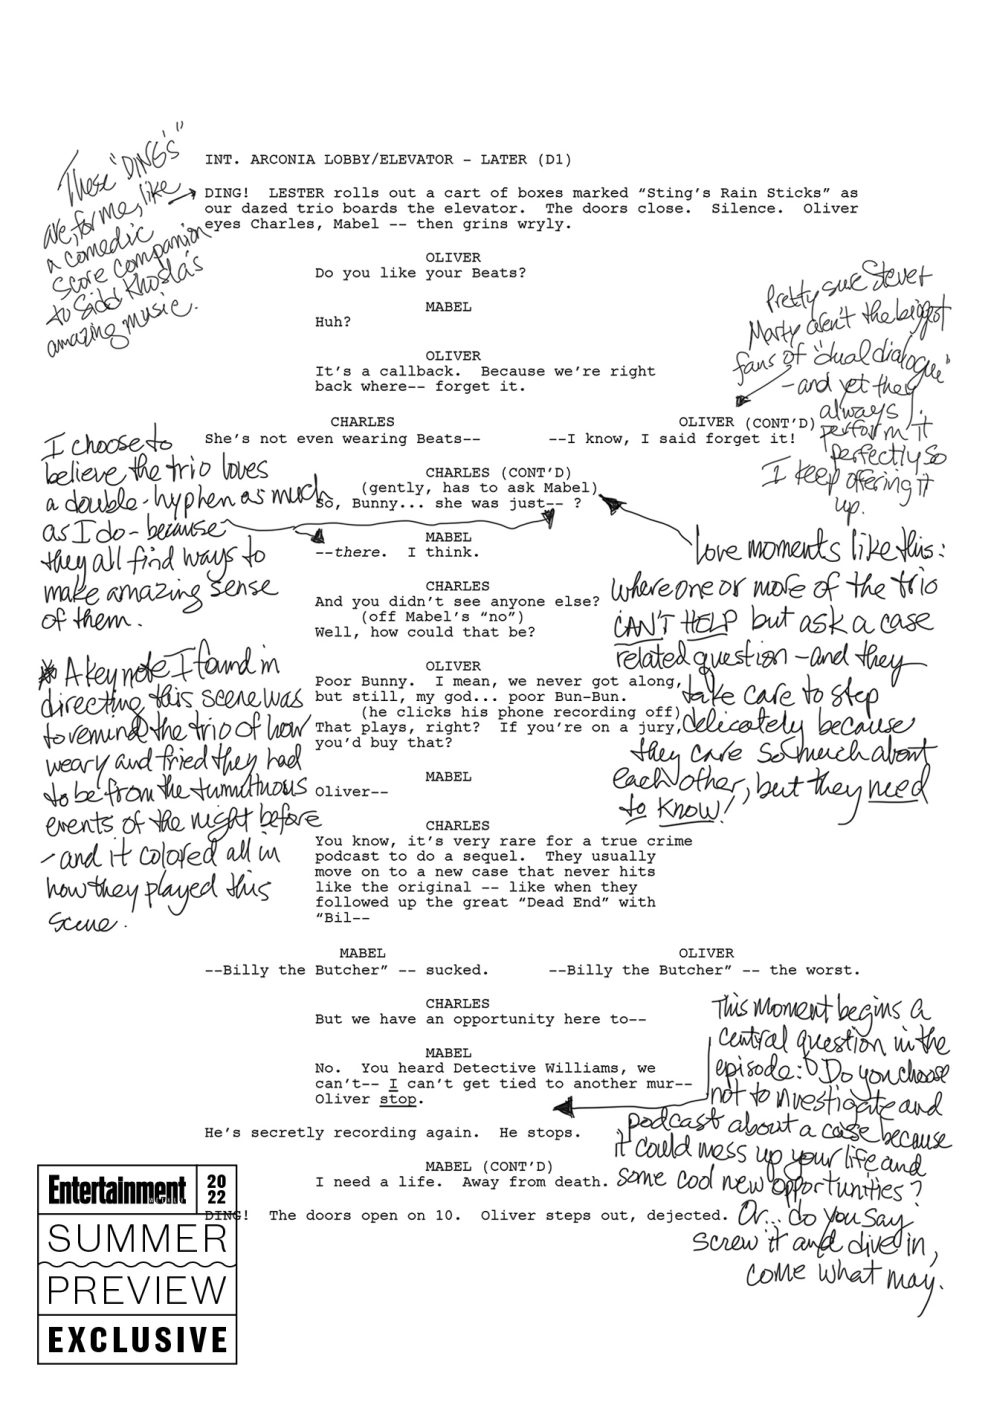 These "DING'S"
are, for me, like
a comedic
score companion
to Sidd Khosla's
amazing music.
INT. ARCONIA LOBBY/ELEVATOR - LATER (D1)
DING!  LESTER rolls out a cart of boxes marked “Sting’s Rain Sticks” as
our dazed trio boards the elevator.  The doors close.  Silence.  Oliver
eyes Charles, Mabel -- then grins wryly.
OLIVER
Do you like your Beats?
MABEL
Huh?
OLIVER
It’s a callback.  Because we’re right
back where-- forget it.
Pretty sure Steve +
Marty aren't the biggest
fans of "dual dialogue"
- and yet they
always
perform it
perfectly so
I keep offering it
up.
CHARLES
She’s not even wearing Beats--
OLIVER (CONT’D)
--I know, I said forget it!
CHARLES (CONT’D)
(gently, has to ask Mabel)
So, Bunny... she was just-- ?
MABEL
--there.  I think.
I choose to
believe the trio loves
a double-hyphen as much
as I do - because
they all find ways to
make amazing sense
of them.
Love moments like this:
where one or more of the trio
CAN'T HELP but ask a case
related question - and they
take care to step
delicately because
they care so much about
each other, but they need
to KNOW!
CHARLES
And you didn’t see anyone else?
(off Mabel’s “no”)
Well, how could that be?
OLIVER
Poor Bunny.  I mean, we never got along,
but still, my god... poor Bun-Bun.
(he clicks his phone recording off)
That plays, right?  If you’re on a jury,
you’d buy that?
MABEL
Oliver--
* A key note I found in
directing this scene was
to remind the trio of how
weary and fried they had
to be from the tumultuous
events of the night before
- and it colored all in
how they played this
scene.
CHARLES
You know, it’s very rare for a true crime
podcast to do a sequel.  They usually
move on to a new case that never hits
like the original -- like when they
followed up the great “Dead End” with
“Bil--
MABEL
--Billy the Butcher” -- sucked.
OLIVER
--Billy the Butcher” -- the worst.
CHARLES
But we have an opportunity here to--
MABEL
No.  You heard Detective Williams, we
can’t-- I can’t get tied to another mur--
Oliver stop.
He’s secretly recording again.  He stops.
MABEL (CONT’D)
I need a life.  Away from death.
DING!  The doors open on 10.  Oliver steps out, dejected.
This moment begins a
central question in the
episode: Do you choose
not to investigate and
podcast about a case because
it could mess up your life and
some cool new opportunities?
Or... do you say
screw it and dive in,
come what may.
Entertainment
WEEKLY
20
22
SUMMER
PREVIEW
EXCLUSIVE